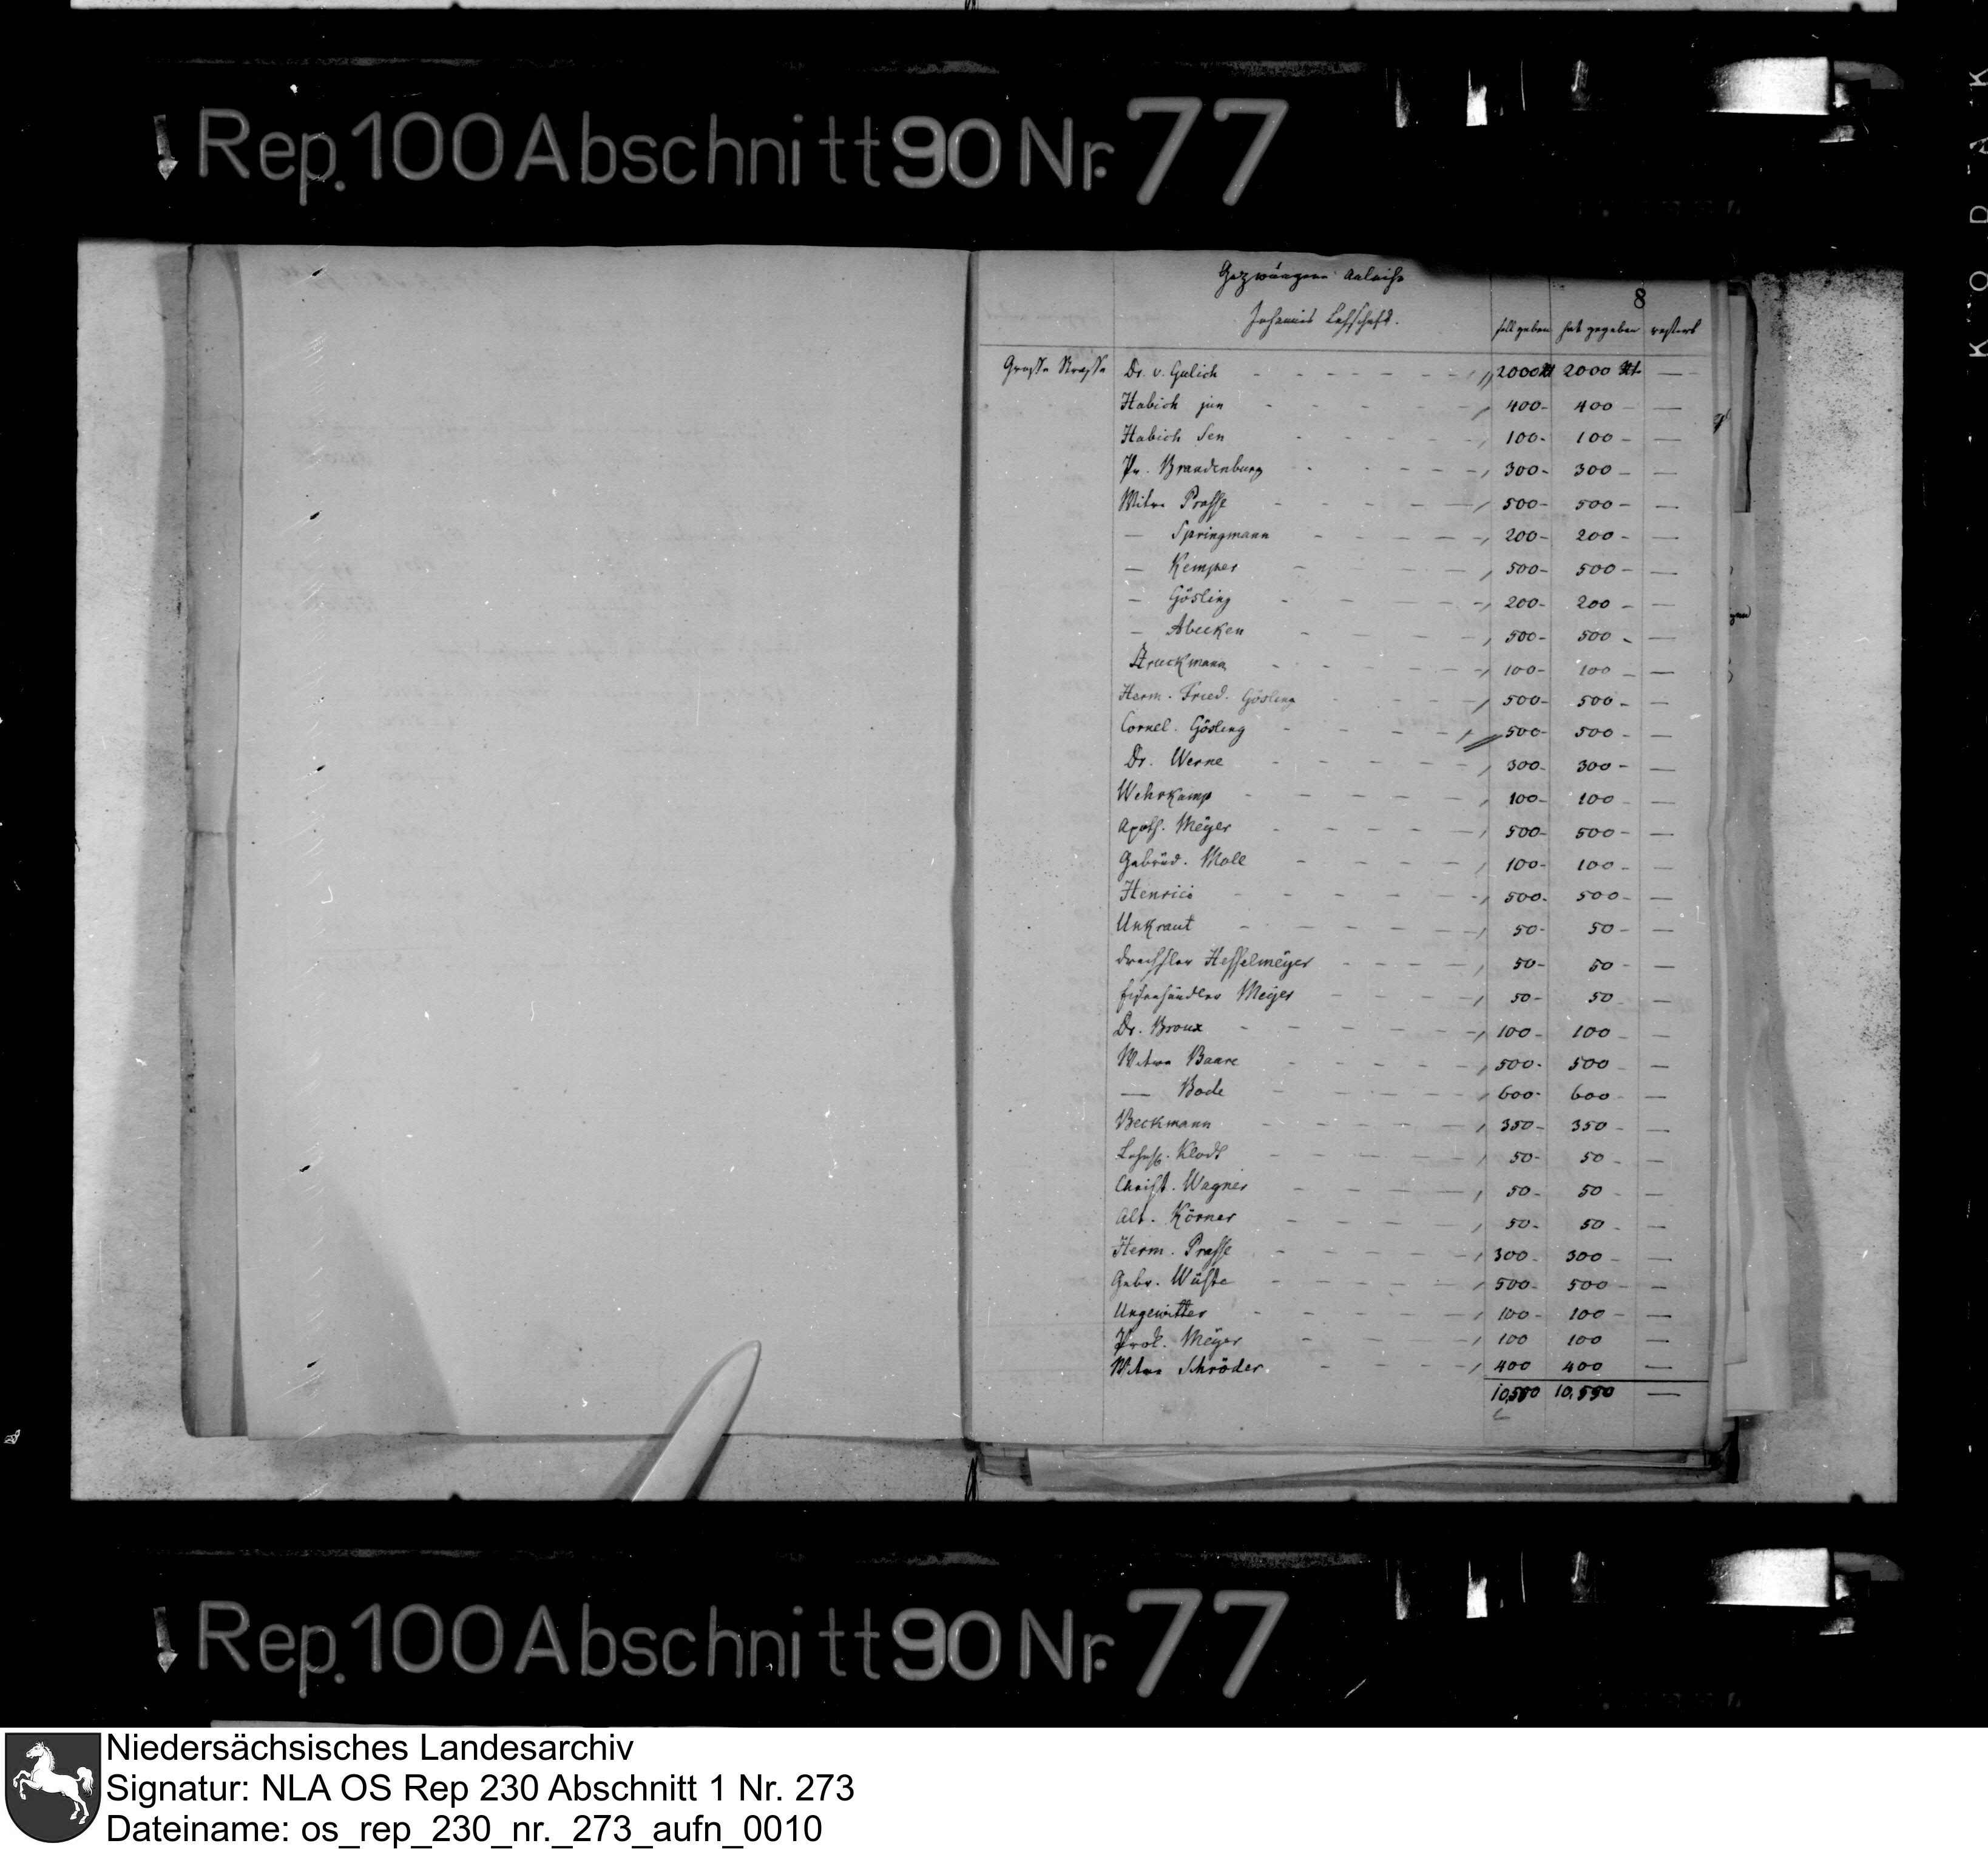 Rep. 100 Abschnitt 90 Nr. 77
Gezwungene Anleihe
8
Johannis Leyschaft.
soll geben hat gegeben restirt
Große Straße Dr. v. Gülich 2000 rt 2000 rt —
Habich jun 400- 400- —
Habich Sen 100- 100- —
Pr. Brandenburg 300- 300- —
Witwe Prasse 500- 500- —
— Springmann 200- 200- —
— Kemper 500- 500- —
— Gösling 200- 200- —
— Abecken 500- 500- —
Struckmann 100- 100- —
Herm. Fried. Gösling 500- 500- —
Cornel. Gösling 500- 500- —
Dr. Werne 300- 300- —
Wehrkamp 100- 100- —
Apoth. Meÿer 500- 500- —
Gebrüd. Moll 100- 100- —
Henrici 500- 500- —
Unkraut 50- 50- —
Drechsler Hesselmeÿer 50- 50- —
Eisenhändler Meÿer 50- 50 —
Dr. Broux 100- 100- —
Witwe Baare 500- 500 —
— Bode 600- 600- —
Beckmann 350- 350- —
Klodt 50- 50- —
Christ. Wagner 50- 50- —
Alb. Körner 50- 50- —
Herm. Prasse 300- 300- —
Gebr. Wüste 500- 500- —
Ungewitter 100- 100- —
Prok. Meÿer 100 100 —
Witwe Schröder. 400 400 —
10,550 10,550 —
Rep. 100 Abschnitt 90 Nr. 77
KODAK
Niedersächsisches Landesarchiv
Signatur: NLA OS Rep 230 Abschnitt 1 Nr. 273
Dateiname: os_rep_230_nr._273_aufn_0010